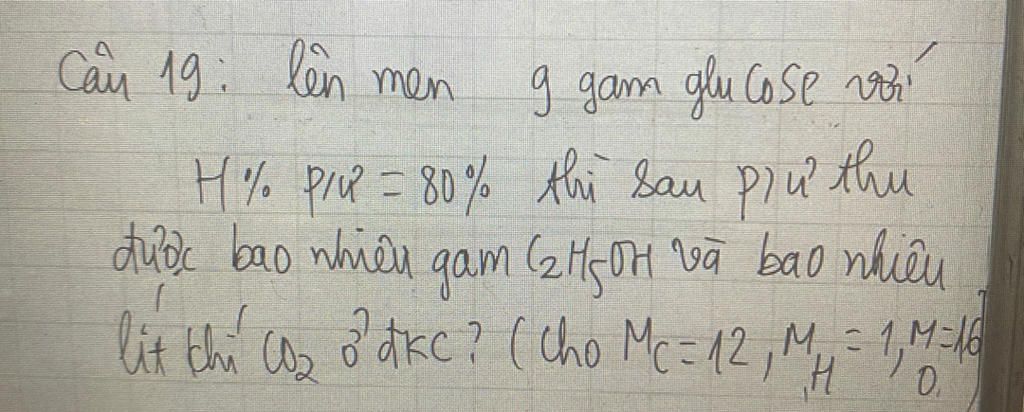 Câu 19: lên men 9 gam glucose với
H% p/ư = 80% thì sau p/ư thu
được bao nhiêu gam C₂H₅OH và bao nhiêu
lít khí CO₂ ở đkc? (Cho M_C = 12, M_H = 1, M_O = 16)